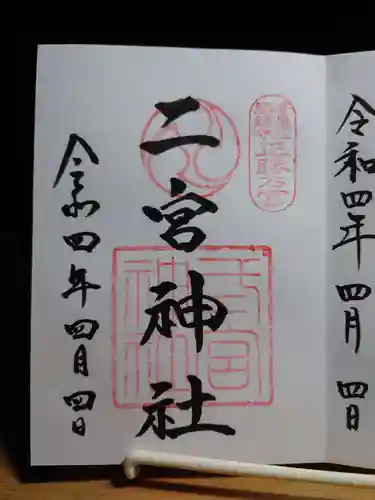 令和四年 四月 四日
二宮神社
令和四年四月四日